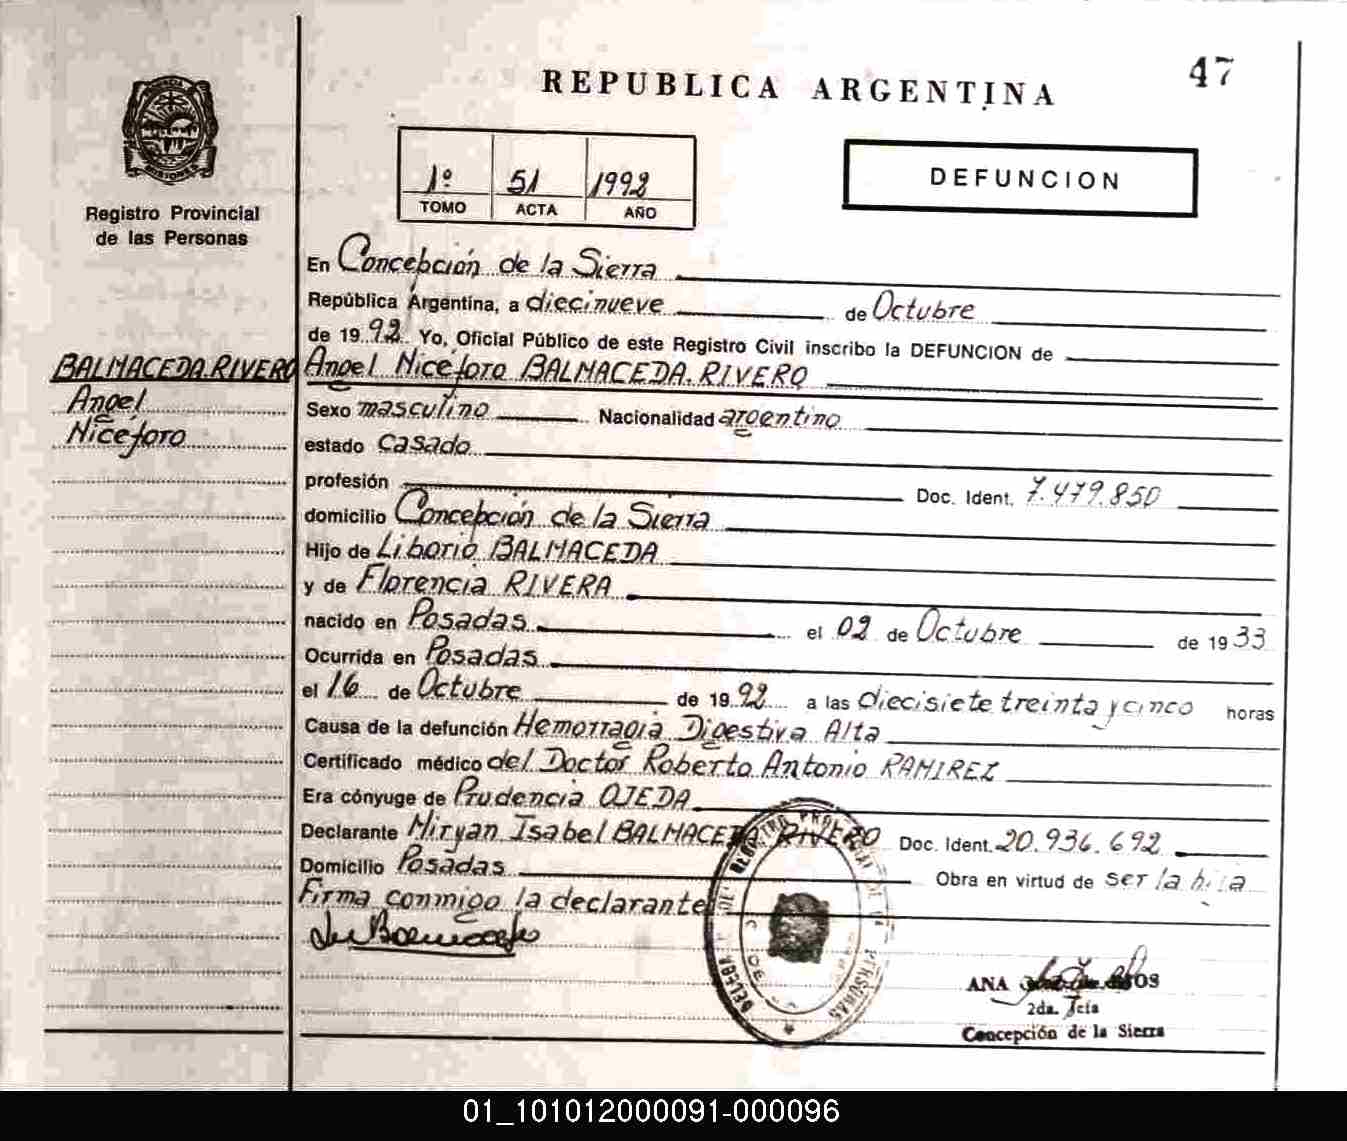 47
REPUBLICA ARGENTINA
1º 51 1992
TOMO ACTA AÑO
DEFUNCION
Registro Provincial
de las Personas
BALMACEDA RIVERO
Angel
Nicéforo
En Concepción de la Sierra
República Argentina, a diecinueve de Octubre
de 1992 Yo, Oficial Público de este Registro Civil inscribo la DEFUNCION de
Angel Nicéforo BALMACEDA RIVERO
Sexo masculino Nacionalidad argentino
estado casado
profesión Doc. Ident. 7.479.850
domicilio Concepción de la Sierra
Hijo de Liborio BALMACEDA
y de Florencia RIVERA
nacido en Posadas el 02 de Octubre de 1933
Ocurrida en Posadas
el 16 de Octubre de 1992 a las diecisiete treinta y cinco horas
Causa de la defunción Hemorragia Digestiva Alta
Certificado médico del Doctor Roberto Antonio RAMIREZ
Era cónyuge de Prudencia OJEDA
Declarante Miryan Isabel BALMACEDA RIVERO Doc. Ident. 20.936.692
Domicilio Posadas Obra en virtud de ser la hija
Firma conmigo la declarante
ANA
2da. Jefa
Concepción de la Sierra
01_101012000091-000096